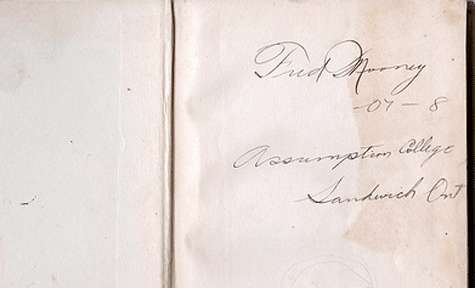 Fred Mooney
- 07 - 8
Assumption College
Sandwich Ont